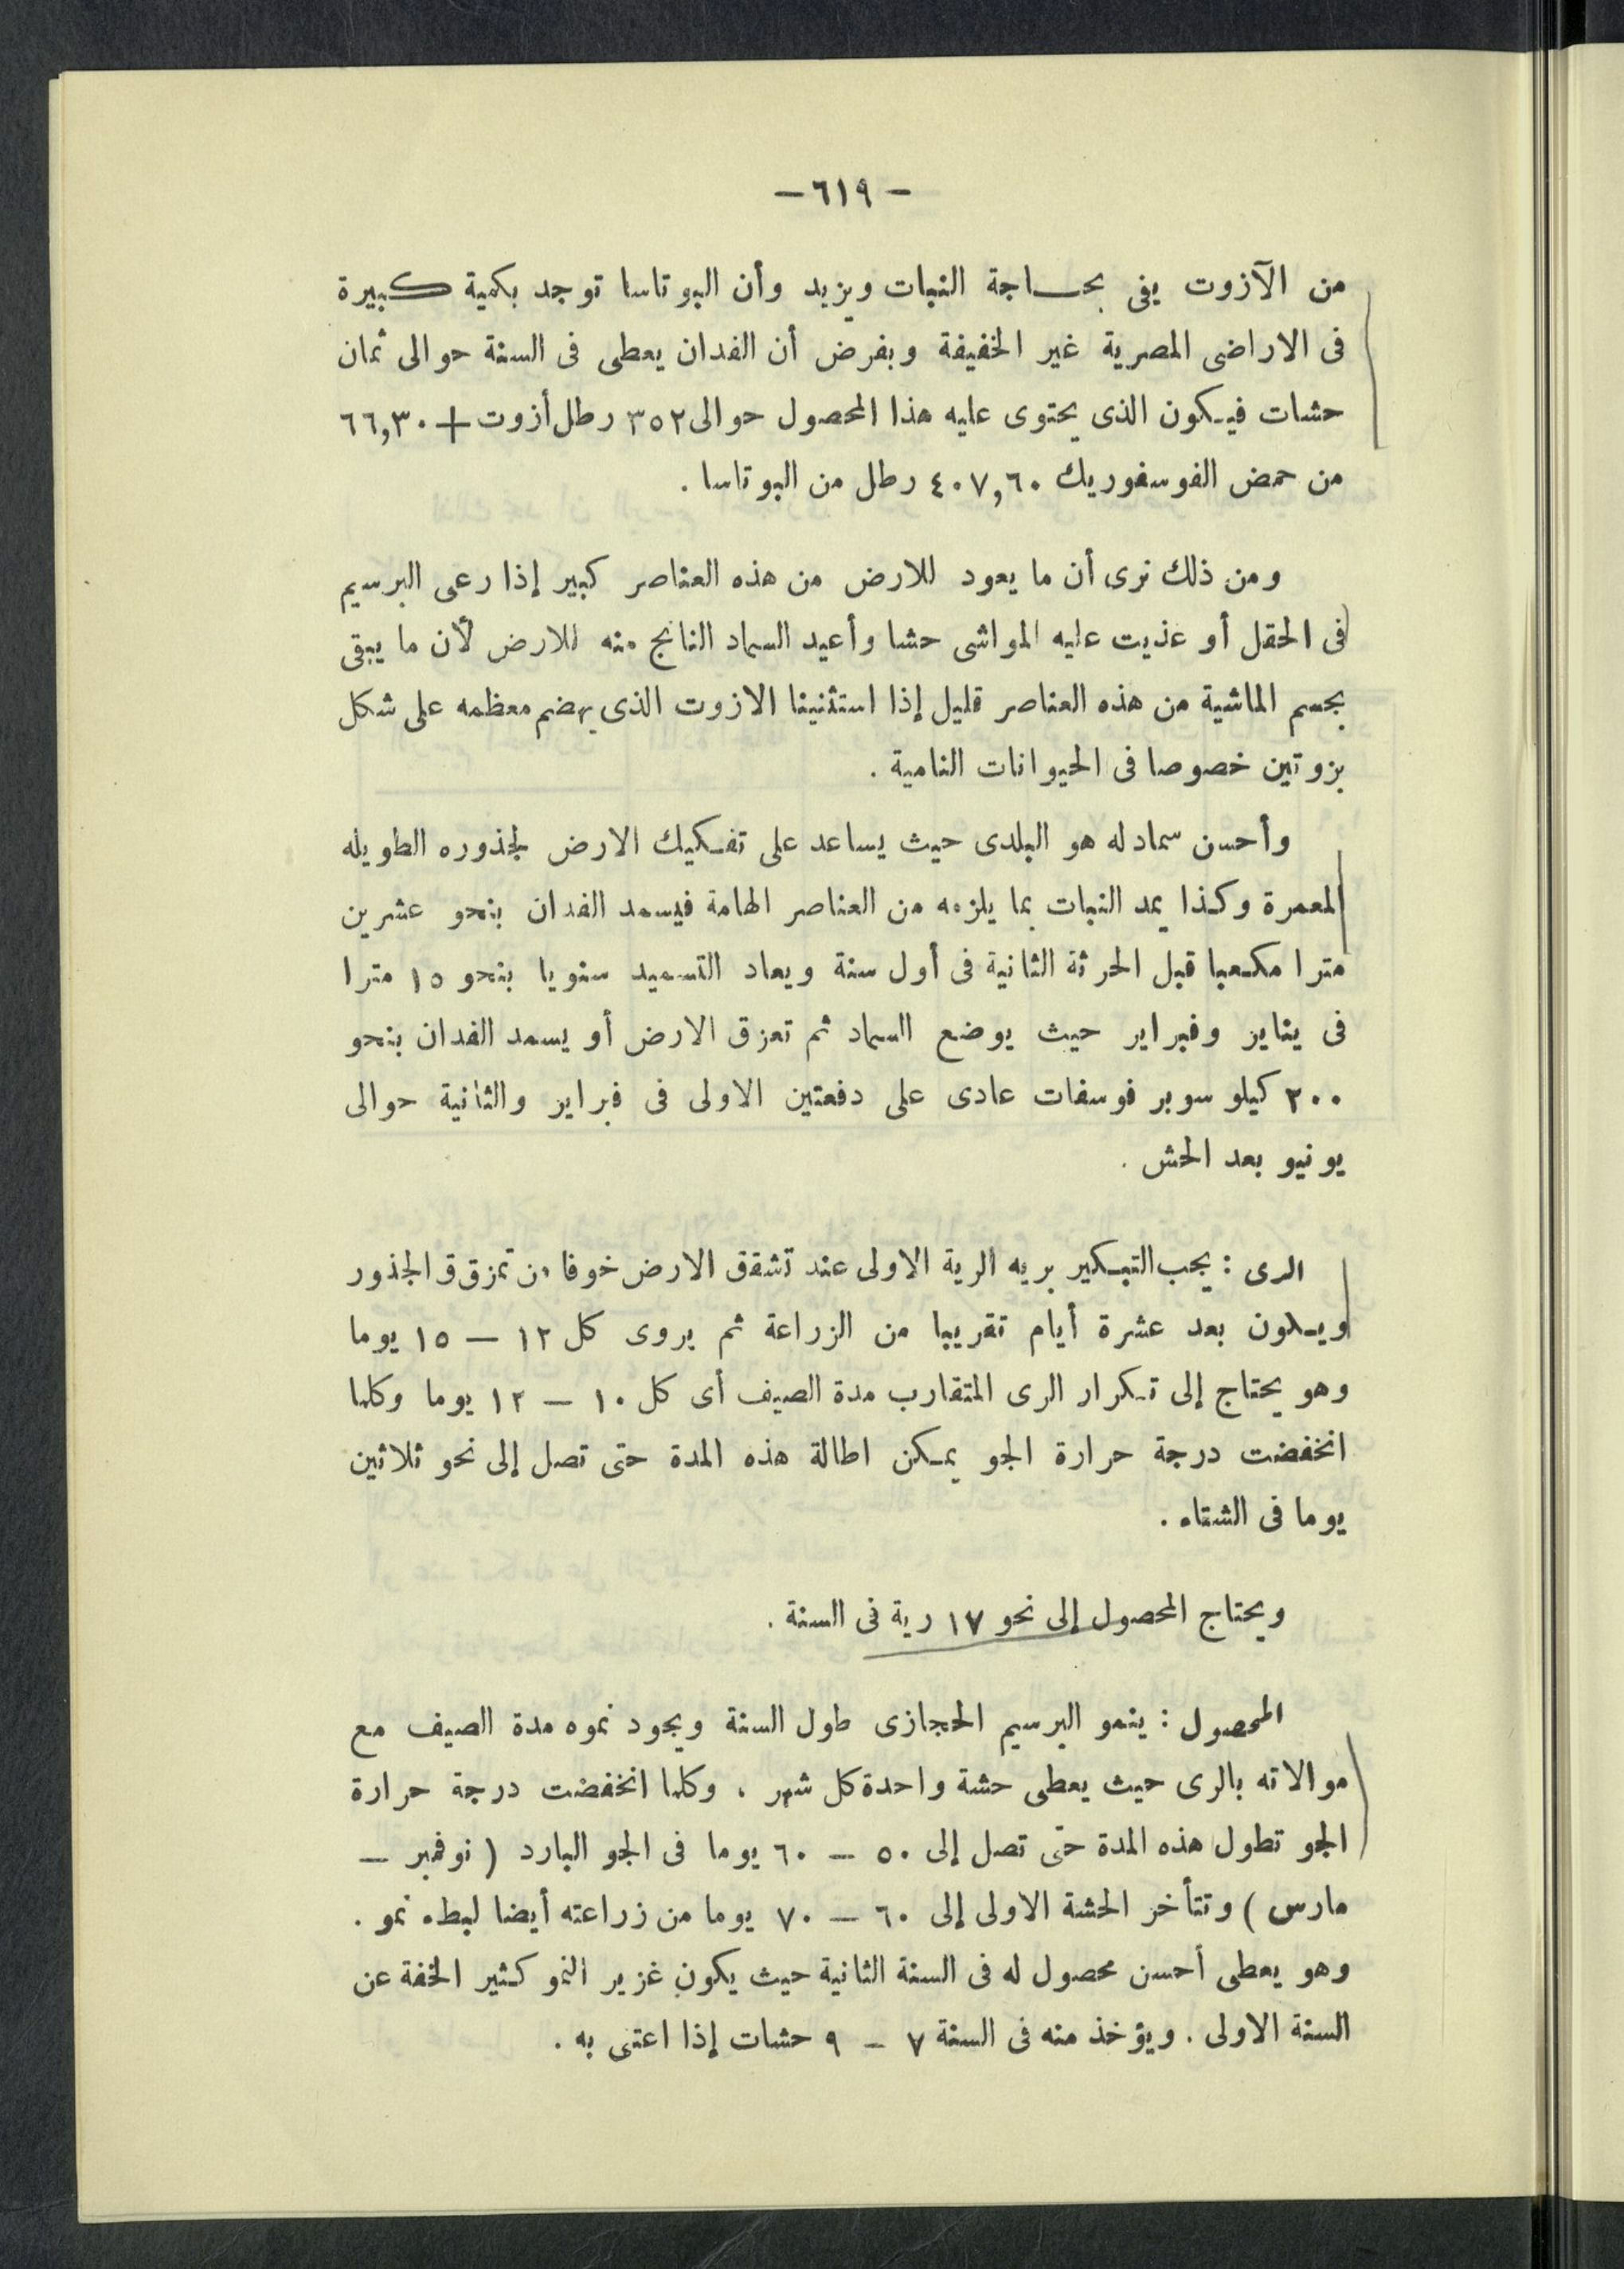 — ٦١٩ —
من الآزوت يفى بحاجة النبات ويزيد وأن البوتاسا توجد بكمية كبيرة
فى الاراضى المصرية غير الخفيفة وبفرض أن الفدان يعطى فى السنة حوالى ثمان
حشات فيكون الذى يحتوى عليه هذا المحصول حوالى ٣٥٢ رطل أزوت + ٦٦,٣٠
من حمض الفوسفوريك ٤٠٧,٦٠ رطل من البوتاسا .
ومن ذلك نرى أن ما يعود للارض من هذه العناصر كبير إذا رعى البرسيم
فى الحقل أو غذيت عليه المواشى حشا وأعيد السماد الناتج منه للارض لأن ما يبقى
بجسم الماشية من هذه العناصر قليل إذا استثنينا الازوت الذى يهضم معظمه على شكل
بزوتين خصوصا فى الحيوانات النامية .
وأحسن سماد له هو البلدى حيث يساعد على تفكيك الارض لجذوره الطويله
المعمرة وكذا يمد النبات بما يلزمه من العناصر الهامة فيسمد الفدان بنحو عشرين
مترا مكعبا قبل الحرثة الثانية فى أول سنة ويعاد التسميد سنويا بنحو ١٥ مترا
فى يناير وفبراير حيث يوضع السماد ثم تعزق الارض أو يسمد الفدان بنحو
٢٠٠ كيلو سوبر فوسفات عادى على دفعتين الاولى فى فبراير والثانية حوالى
يونيو بعد الحش .
الرى : يجب التبكير بريه الرية الاولى عند تشقق الارض خوفا من تمزق ق الجذور
ويكون بعد عشرة أيام تقريبا من الزراعة ثم يروى كل ١٢ — ١٥ يوما
وهو يحتاج إلى تكرار الرى المتقارب مدة الصيف أى كل ١٠ — ١٢ يوما وكلما
انخفضت درجة حرارة الجو يمكن اطالة هذه المدة حتى تصل إلى نحو ثلاثين
يوما فى الشتاء .
ويحتاج المحصول إلى نحو ١٧ رية فى السنة .
المحصول : ينمو البرسيم الحجازى طول السنة ويجود نموه مدة الصيف مع
موالاته بالرى حيث يعطى حشة واحدة كل شهر ، وكلما انخفضت درجة حرارة
الجو تطول هذه المدة حتى تصل إلى ٥٠ — ٦٠ يوما فى الجو البارد ( نوفمبر —
مارس ) وتتأخر الحشة الاولى إلى ٦٠ — ٧٠ يوما من زراعته أيضا لبطء نمو .
وهو يعطى أحسن محصول له فى السنة الثانية حيث يكون غزير النمو كثير الخفة عن
السنة الاولى . ويؤخذ منه فى السنة ٧ — ٩ حشات إذا اعتنى به .